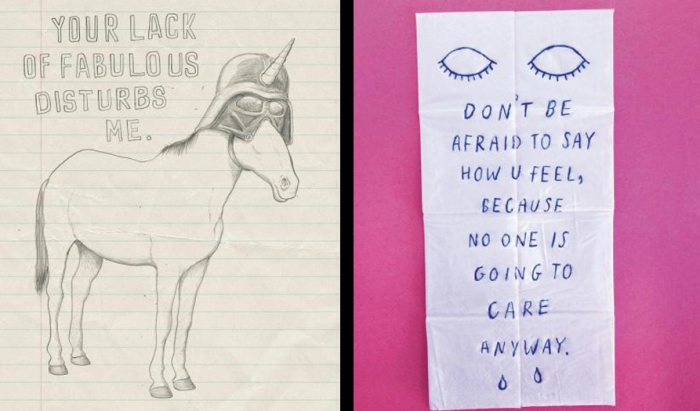 YOUR LACK
OF FABULOUS
DISTURBS
ME.
DON'T BE
AFRAID TO SAY
HOW U FEEL,
BECAUSE
NO ONE IS
GOING TO
CARE
ANYWAY.